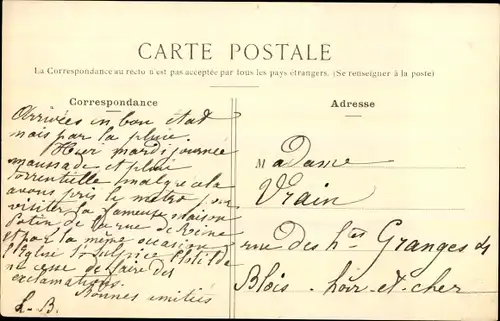 CARTE POSTALE
La Correspondance au recto n'est pas acceptée par tous les pays étrangers. (Se renseigner à la poste)
Correspondance
Arrivées en bon état
mais par la pluie.
Hier mardi journée
maussade et pluie
torrentielle malgré cela
avons pris le metro pour
visiter la fameuse maison
Potin de la rue de Reine
et par la même occasion
l'Eglise St Sulpice Clotilde
ne cesse de faire des
exclamations.
Bonnes amitiés
L. B.
Adresse
Madame
Vrain
rue des htes Granges
Blois. Loir-et-cher